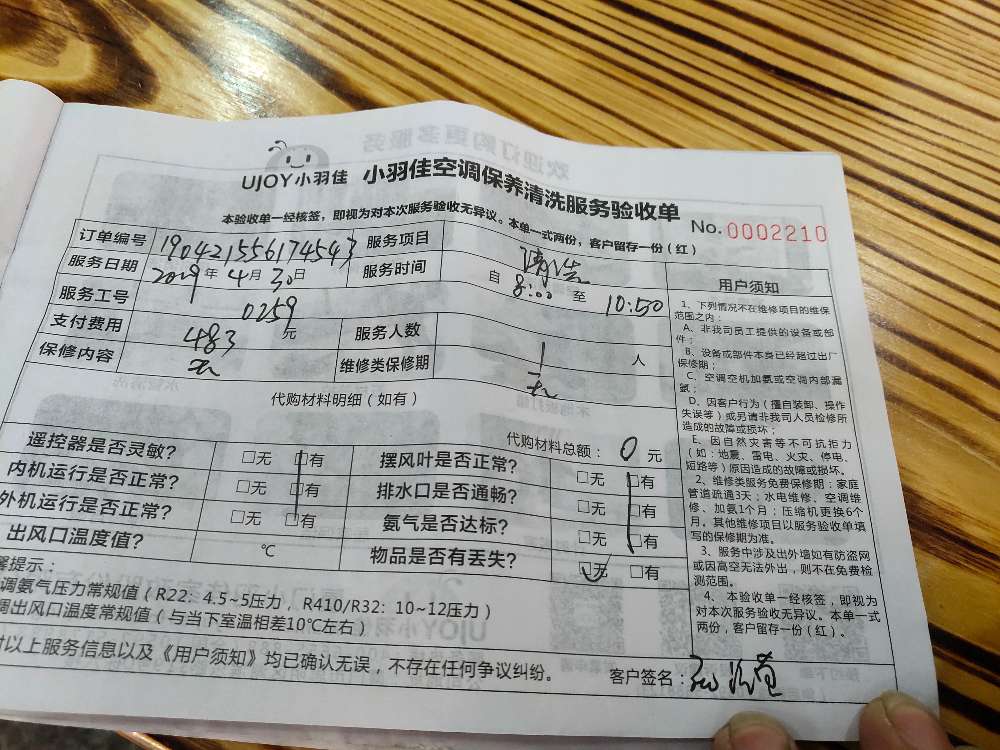 UJOY小羽佳 小羽佳空调保养清洗服务验收单
本验收单一经核签，即视为对本次服务验收无异议。本单一式两份，客户留存一份（红）
No.0002210
订单编号 190421556174543 服务项目 清洗
服务日期 2019年4月30日 服务时间 自 8:00 至 10:50
服务工号 0259
支付费用 483元 服务人数 1 人
保修内容 无 维修类保修期 无
代购材料明细（如有）
代购材料总额： 0 元
遥控器是否灵敏? □无 □有 摆风叶是否正常? □无 □有
内机运行是否正常? □无 □有 排水口是否通畅? □无 □有
外机运行是否正常? □无 □有 氨气是否达标? □无 □有
出风口温度值? ℃ 物品是否有丢失? □无 □有
馨提示：
调氨气压力常规值（R22：4.5~5压力，R410/R32：10~12压力）
调出风口温度常规值（与当下室温相差10℃左右）
对以上服务信息以及《用户须知》均已确认无误，不存在任何争议纠纷。
客户签名：
用户须知
1、下列情况不在维修项目的维保
范围之内：
A、非我司员工提供的设备或部
件；
B、设备或部件本身已经超过出厂
保修期；
C、空调空机加氨或空调内部漏
氨；
D、因客户行为（擅自装卸、操作
失误等）或另请非我司人员检修所
造成的故障或损坏；
E、因自然灾害等不可抗拒力
（如：地震、雷电、火灾、停电、
短路等）原因造成的故障或损坏。
2、维修类服务免费保修期：家庭
管道疏通3天；水电维修、空调维
修、加氨1个月；压缩机更换6个
月。其他维修项目以服务验收单填
写的保修期为准。
3、服务中涉及出外墙如有防盗网
或因高空无法外出，则不在免费检
测范围。
4、本验收单一经核签，即视为
对本次服务验收无异议。本单一式
两份，客户留存一份（红）。